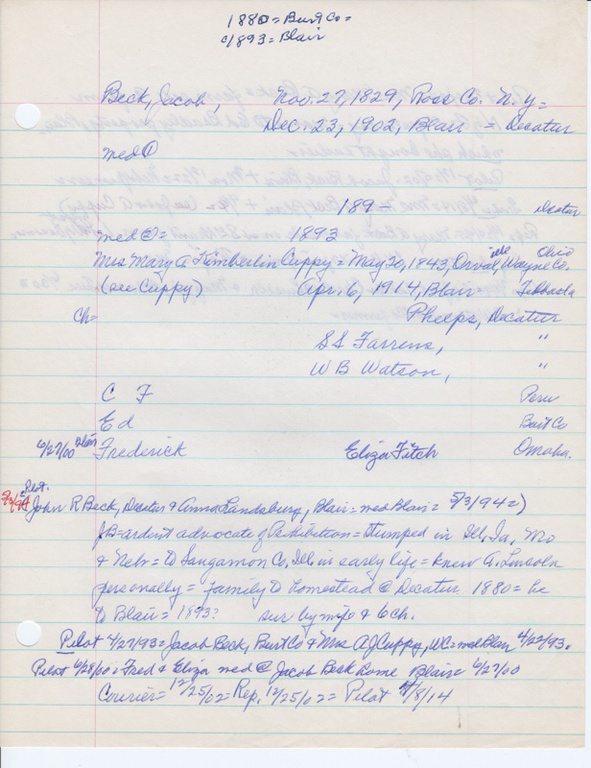 1880 = Burt Co =
c/1893 = Blair
Beck, Jacob, Nov. 27, 1829, Ross Co. N.Y =
Dec. 23, 1902, Blair = Decatur
med ①
189 - Decatur
med ② = 1893
Mrs Mary A Kimberlin Cuppy = May 20, 1843, Orville, Wayne Co. Ohio
(see Cuppy) Apr. 6, 1914, Blair
Ch = Phelps, Decatur
S S Farrens, "
W B Watson, "
C F Peru
Ed Burt Co
6/27/00 Blair Frederick Eliza Fitch Omaha.
Pilot.
5/3/94 John R Beck, Decatur & Anna Landsburg, Blair = med Blair = 5/3/94 =)
JB = ardent advocate of Prohibition = stumped in Ill, Ia, Mo
& Nebr = to Sangamon Co, Ill. in early life = knew A. Lincoln
personally = family to homestead @ Decatur 1880 = he
to Blair = 1893? sur by wife & 6 ch.
Pilot 4/27/93 = Jacob Beck, Burt Co & Mrs A J Cuppy, WC = med Blair 4/22/93.
Pilot 6/28/00 = Fred & Eliza med @ Jacob Beck home Blair = 6/27/00
Courier = 12/25/02 = Rep. 12/25/02 = Pilot 4/8/14